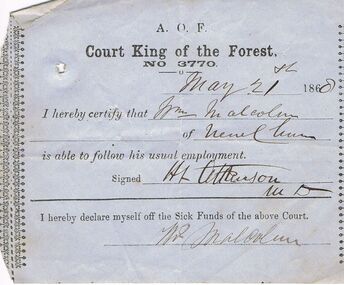 A. O. F.
Court King of the Forest.
NO 3770.
May 21st 1868
I hereby certify that Wm Malcolm
of
is able to follow his usual employment.
Signed HL Atkinson
MD
I hereby declare myself off the Sick Funds of the above Court.
Wm Malcolm